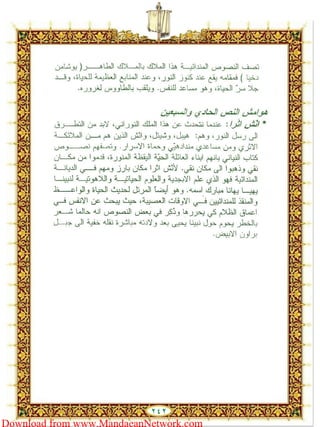 تصف النصوص المندائية هذا الملاك بالملاك الطاهر( يوشامن
دخيا ) فمقامه يقع عند كنوز النور، وعند المنابع العظيمة للحياة، وقد
جلا سرّ الحياة، وهو مساعد للنفس. ويلقب بالطاووس لغروره.
هوامش النص الحادي والسبعين
* انش اثرا: عندما نتحدث عن هذا الملك النوراني، لابد من التطرق
الى رسل النور، وهم: هيبل، وشيتل، وانش الذين هم من الملائكة
الاثري ومن مساعدي منداادهيّي وحماة الاسرار. وتصفهم نصوص
كتاب التيباني بانهم ابناء العائلة الحيّة اليقظة المنورة، قدموا من مكان
نقي وذهبوا الى مكان نقي. لأنش اثرا مكان بارز ومهم في الديانة
المندائية فهو الذي علم الابجدية والعلوم الحياتية واللاهوتية لنبينا
يهيا يهانا مبارك اسمه. وهو أيضاً المرتل لحديث الحياة والواعظ
والمنقذ للمندائيين في الاوقات العصيبة، حيث يبحث عن الانفس في
اعماق الظلام كي يحررها وذكر في بعض النصوص انه حالما شعر
بالخطر يحوم حول نبينا يحيى بعد ولادته مباشرة نقله خفية الى جبل
براون الابيض.
٢٤٢
Download from www.MandaeanNetwork.com